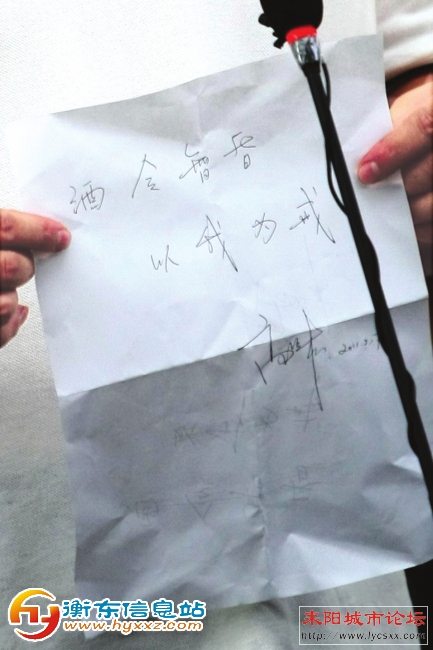 酒令智昏
以我为戒
高晓松 2011.5.
衡东信息站
www.hyxxz.com
耒阳城市论坛
http://www.lycsxx.com